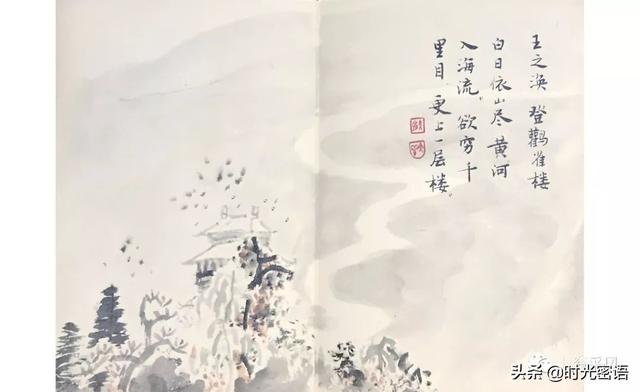 王之涣 登鸛雀楼
白日依山尽 黄河
入海流。欲穷千
里目 更上一层楼。
头条 @时光密语